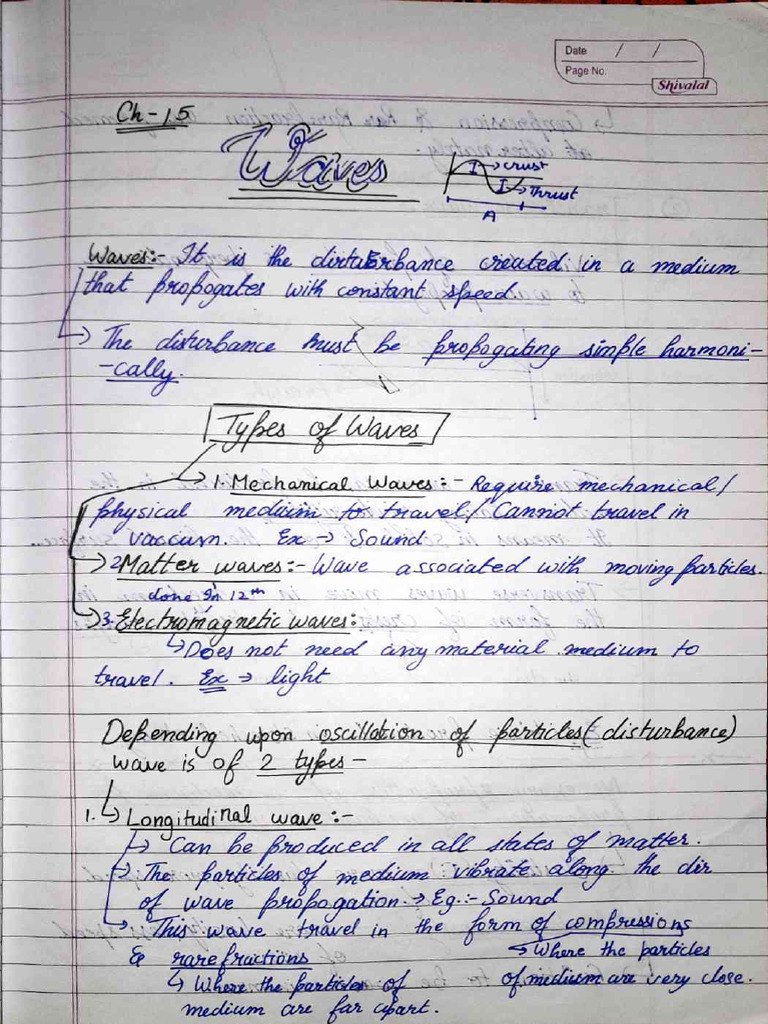 Date / /
Page No.
Shivalal
Ch-15
Waves
crust
Thrust
A
Waves:- It is the disturbance created in a medium
that propogates with constant speed
→ The disturbance must be propogating simple harmoni-
-cally.
Types of Waves
→ 1. Mechanical Waves:- Require mechanical/
physical medium to travel/ Cannot travel in
vaccum. Ex → Sound
→ 2 Matter waves:- Wave associated with moving particles.
done in 12th
→ 3. Electromagnetic waves:
↳ Does not need any material medium to
travel. Ex → light
Depending upon oscillation of particles (disturbance)
wave is of 2 types -
1. ↳ Longitudinal wave:-
↳ Can be produced in all states of matter.
→ The particles of medium vibrate along the dir
of wave propogation. → Eg:- Sound
→ This wave travel in the form of compressions
& rarefractions → Where the particles
↳ Where the particles of of medium are very close.
medium are far apart.